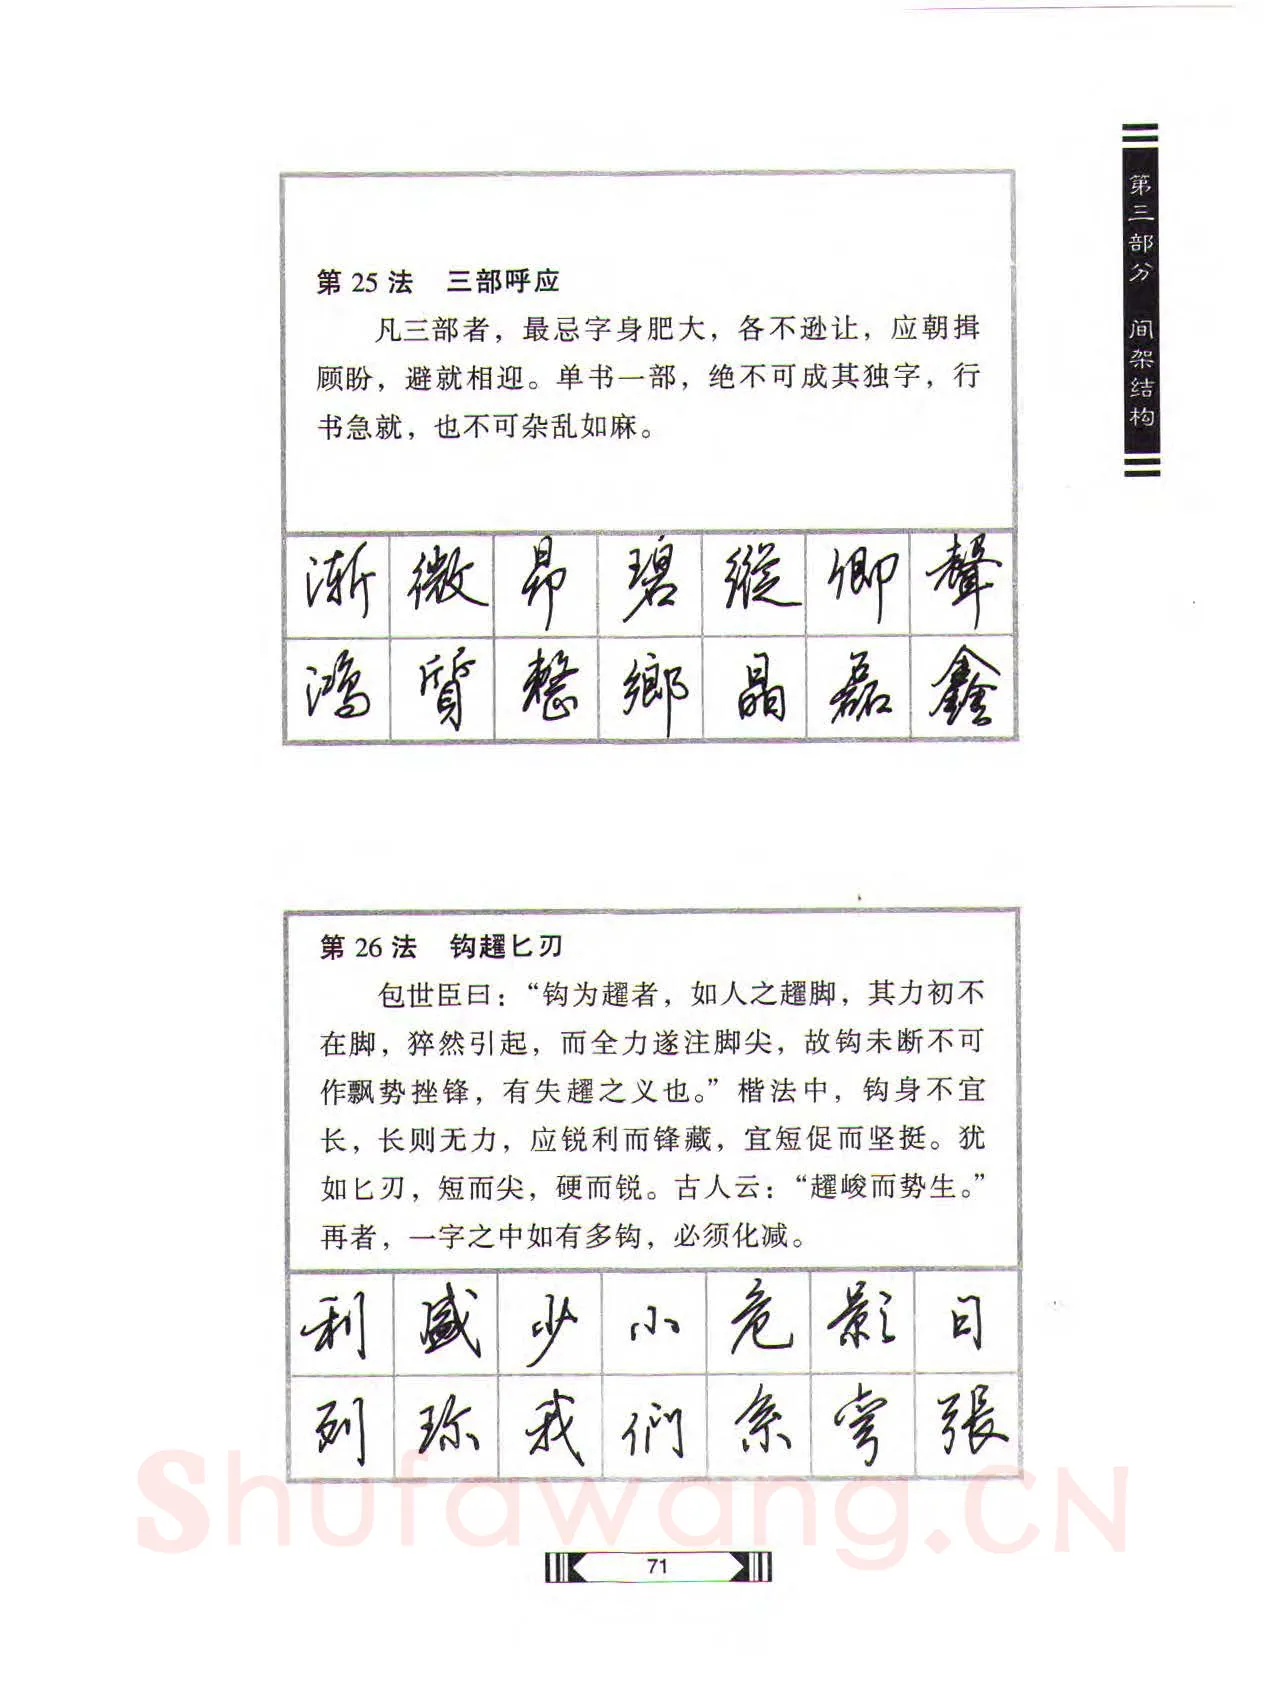 第三部分 间架结构
第 25 法 三部呼应
凡三部者，最忌字身肥大，各不逊让，应朝揖
顾盼，避就相迎。单书一部，绝不可成其独字，行
书急就，也不可杂乱如麻。
渐 微 昂 碧 縱 卿 聲
鴻 質 整 鄉 晶 磊 鑫
第 26 法 钩趯匕刃
包世臣曰：“钩为趯者，如人之趯脚，其力初不
在脚，猝然引起，而全力遂注脚尖，故钩未断不可
作飘势挫锋，有失趯之义也。”楷法中，钩身不宜
长，长则无力，应锐利而锋藏，宜短促而坚挺。犹
如匕刃，短而尖，硬而锐。古人云：“趯峻而势生。”
再者，一字之中如有多钩，必须化减。
利 盛 少 小 危 影 日
列 珎 我 們 系 弯 張
Shufawang.CN
71